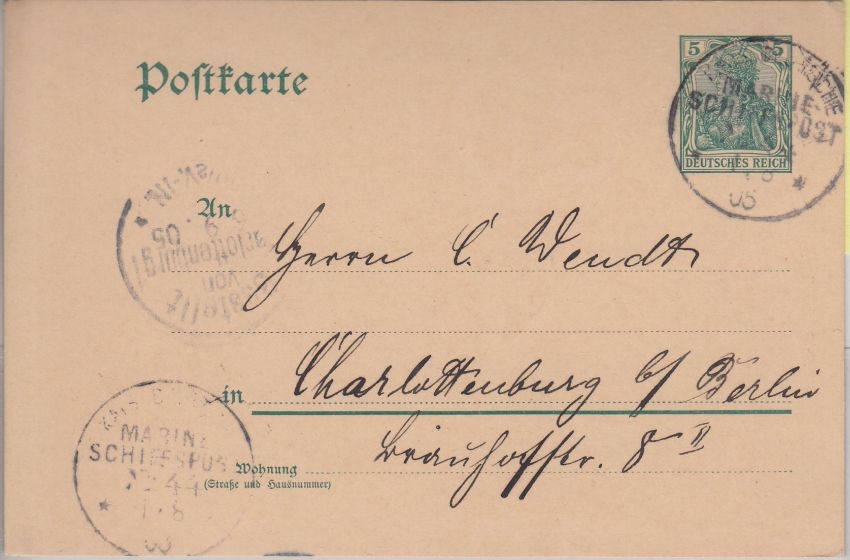 5 5
Postkarte
DEUTSCHES REICH
MARINE-
SCHIFFSPOST
8
05
An
Herrn C. Wendt
in Charlottenburg b/ Berlin
Wohnung
(Straße und Hausnummer)
8 II
05
von
MARINE
SCHIFFSPOST
No 44
8